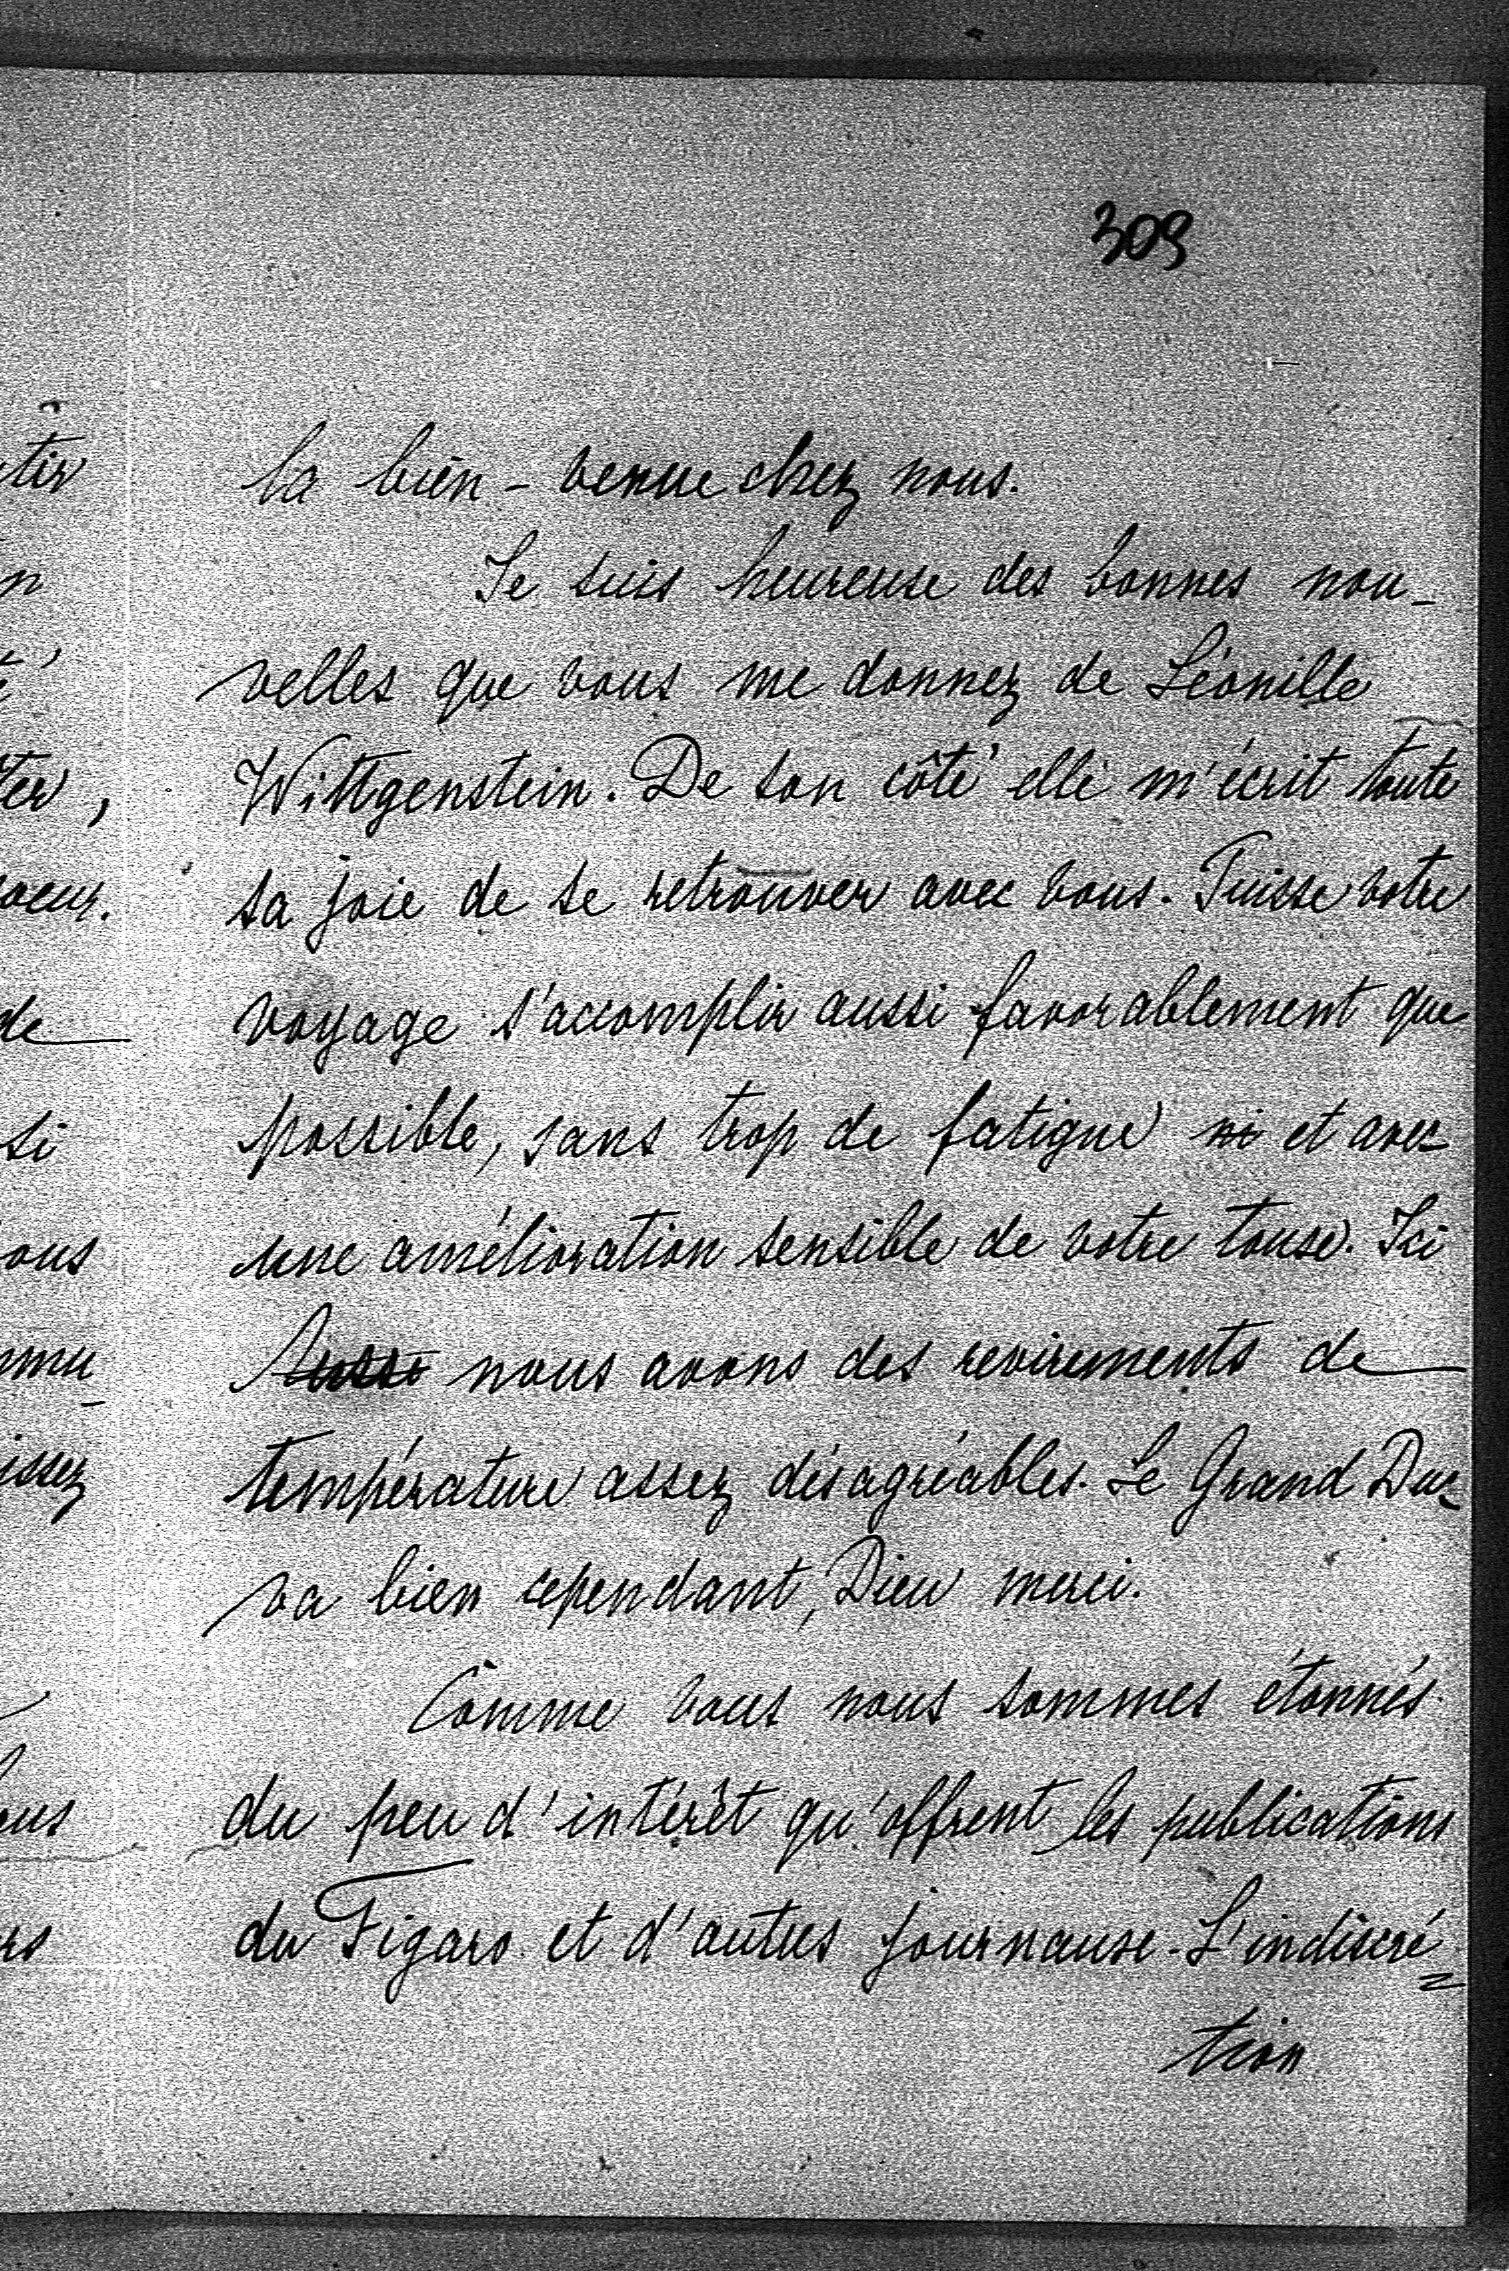 309
la bien-venue chez nous.
Je suis heureuse des bonnes nou-
velles que vous me donnez de Léonille
Wittgenstein. De son côté elle m'écrit toute
sa joie de se retrouver avec vous. Puisse votre
voyage s'accomplir aussi favorablement que
possible, sans trop de fatigue ni et avec
une amélioration sensible de votre toux. Ici
nous avons des revirements de
température assez désagréables. Le Grand Duc
va bien cependant, Dieu merci.
Comme vous nous sommes étonnés
du peu d'intérêt qu'offrent les publications
du Figaro et d'autres journaux. L'indiscré-
tion